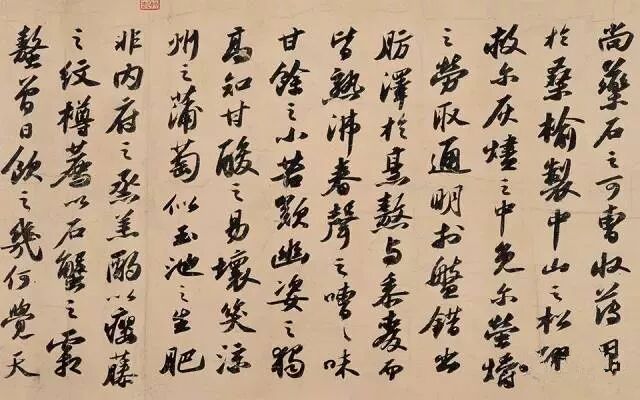 尚藥石之可曹收薄用
於桑榆製中山之松醪
救尔灰燼之中免尔螢爝
之勞取通明於盤錯出
肪澤於烹熬与黍麥而
皆熟沸春聲之嘈〻味
甘餘之小苦歎幽姿之獨
高知甘酸之易壞笑涼
州之蒲萄似玉池之生肥
非內府之烝羔酌以癭藤
之紋樽薦以石蟹之霜
螯曾日飲之幾何覺天